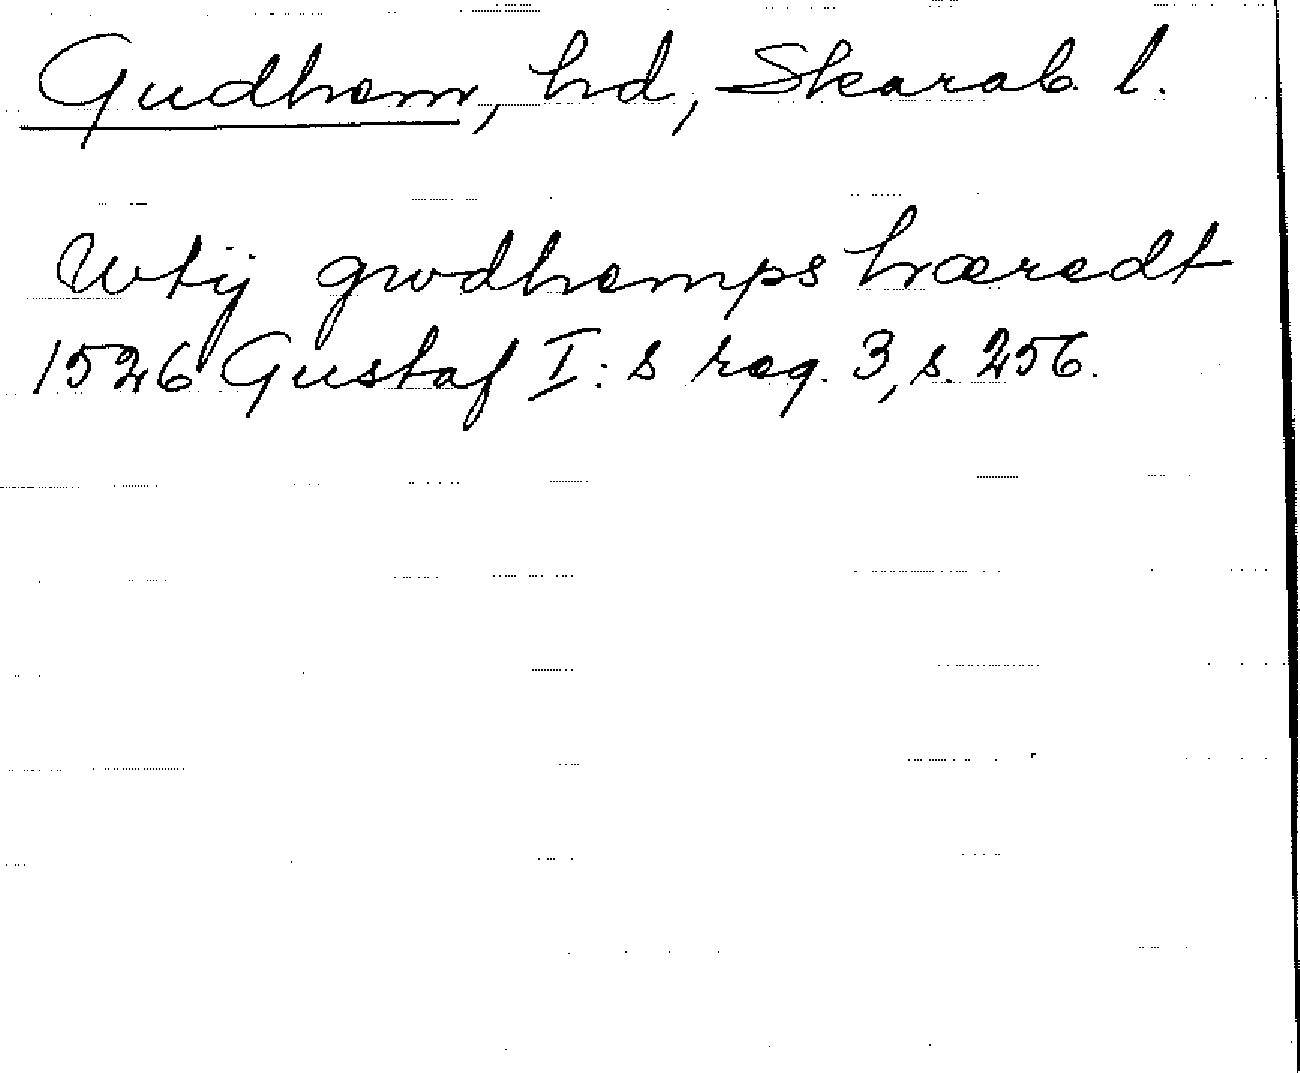 Gudhem, hd, Skarab. l.
Wtij gwdhemps hæredt
1526 Gustaf I:s reg. 3, s. 256.